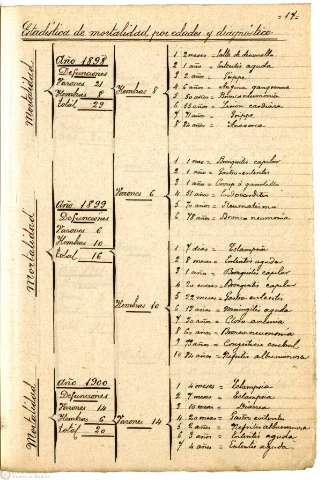 - 17 -
Estadística de mortalidad por edades y diagnostico
Mortalidad
Año 1898
Defunciones
Varones 21
Hembras 8
total 29
Hembras 8
1 2 meses = Falta de desarrollo
2 1 año = Enteritis aguda
3 2 años = Grippe
4 6 años = Angina gangrenosa
5 50 años = Bronconeumonia
6 55 años = Lesion cardiaca
7 71 años = Grippe
8 84 años = Anasarca
Mortalidad
Año 1899
Defunciones
Varones 6
Hembras 10
total 16
Varones 6
1 1 mes = Bronquitis capilar
2 1 año = Gastro-enteritis
3 1 año = Croup ó garrotillo
4 51 años = Endocarditis
5 70 años = Reumatismo
6 78 años = Bronco neumonia
Hembras 10
1 7 dias = Eclampsia
2 8 meses = Enteritis aguda
3 1 año = Bronquitis capilar
4 20 meses = Bronquitis capilar
5 22 meses = Gastro enteritis
6 19 años = Meningitis aguda
7 30 años = Cloro anemia
8 60 años = Bronconeumonia
9 73 años = Congestion cerebral
10 84 años = Nefritis albuminosa
Mortalidad
Año 1900
Defunciones
Varones 14
Hembras 6
total 20
Varones 14
1 4 meses = Eclampsia
2 7 meses = Eclampsia
3 10 meses = Diarrea
4 20 meses = Gastro enteritis
5 2 años = Nefritis albuminosa
6 3 años = Enteritis aguda
7 4 años = Enteritis aguda